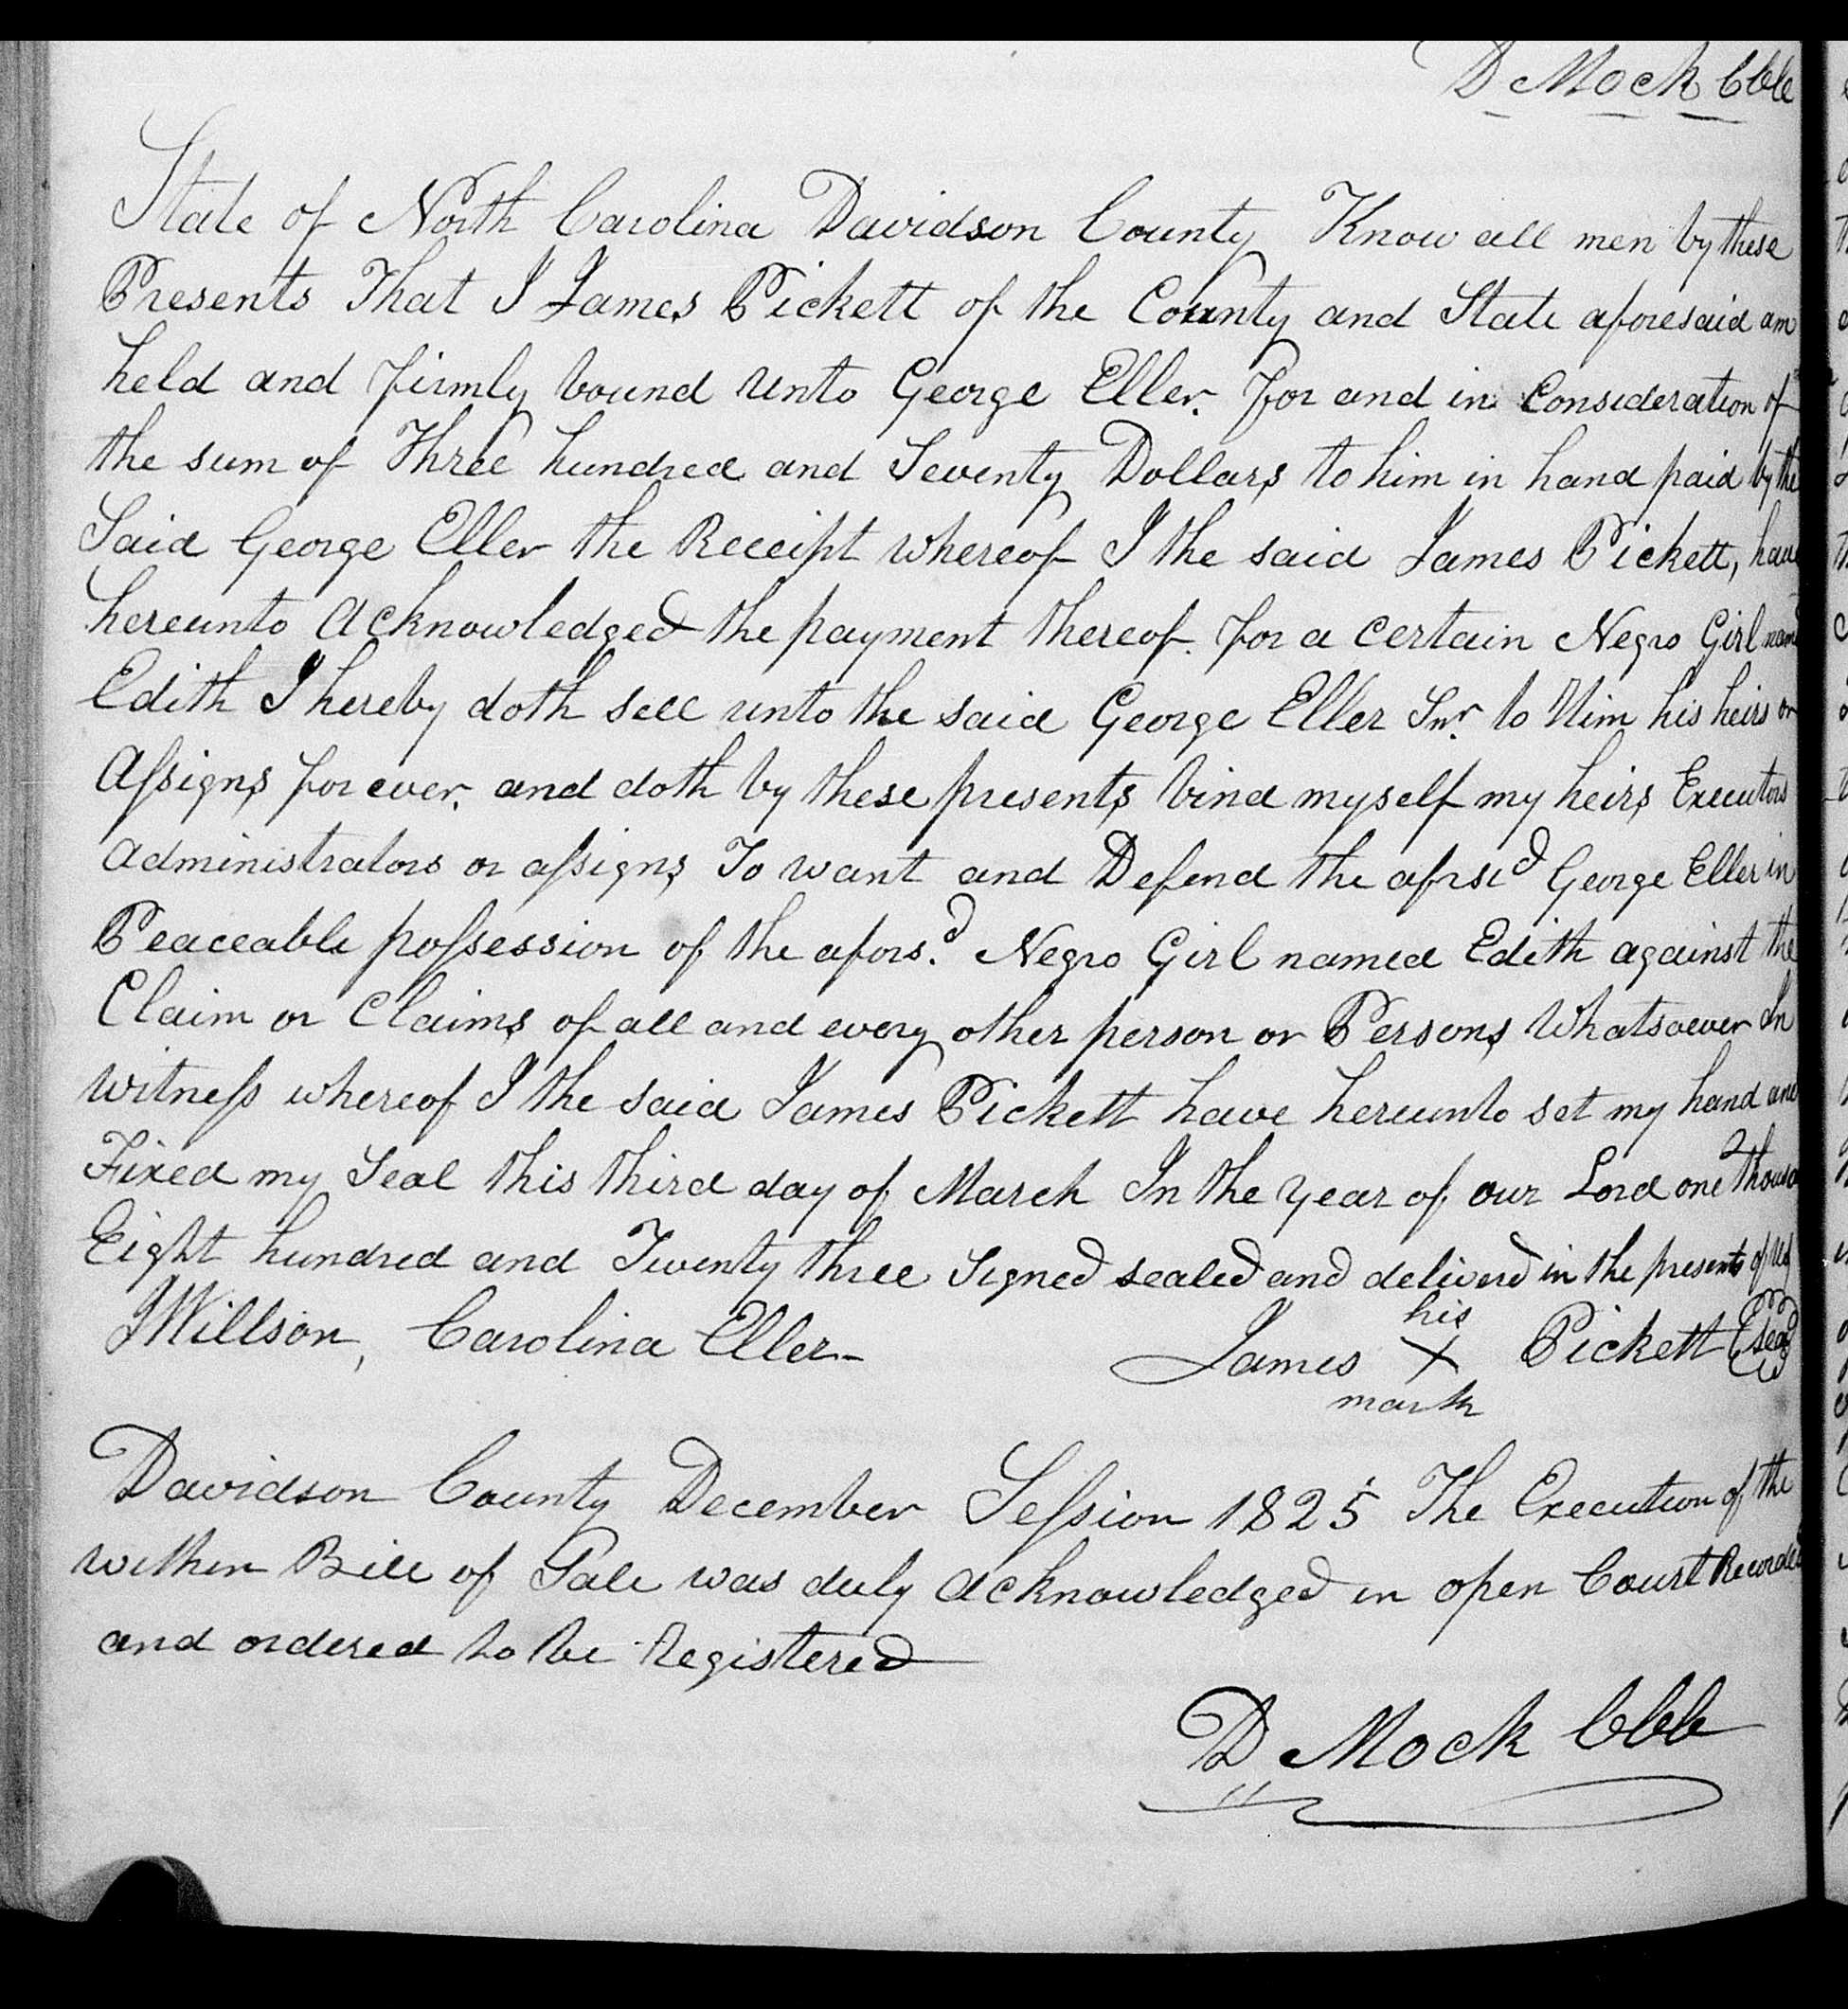 D Mock Clk
State of North Carolina Davidson County Know all men by these
Presents That I James Pickett of the County and State aforesaid am
held and firmly bound unto George Eller. For and in Consideration of
the sum of Three hundred and Seventy Dollars to him in hand paid by the
Said George Eller the Receipt whereof I the said James Pickett, have
hereunto Acknowledged the payment thereof. for a certain Negro Girl named
Edith I hereby doth sell unto the said George Eller Snr. to Him his heirs or
Assigns for ever. and doth by these presents bind myself my heirs Executors
Administrators or assigns To want and Defend the aforsd George Eller in
Peaceable possession of the afors.d Negro Girl named Edith against the
Claim or Claims of all and every other person or Persons Whatsoever In
witness whereof I the said James Pickett have hereunto set my hand and
Fixed my Seal this third day of March In the year of our Lord one thousa
Eight hundred and Twenty three Signed sealed and deliverd in the presents of us
JWillson, Carolina Eller James his X mark Pickett (seal)
Davidson County December Session 1825 The Execution of the
within Bill of Sale was duly Acknowledged in open Court Recorded
and ordered to be Registered
D Mock Clk